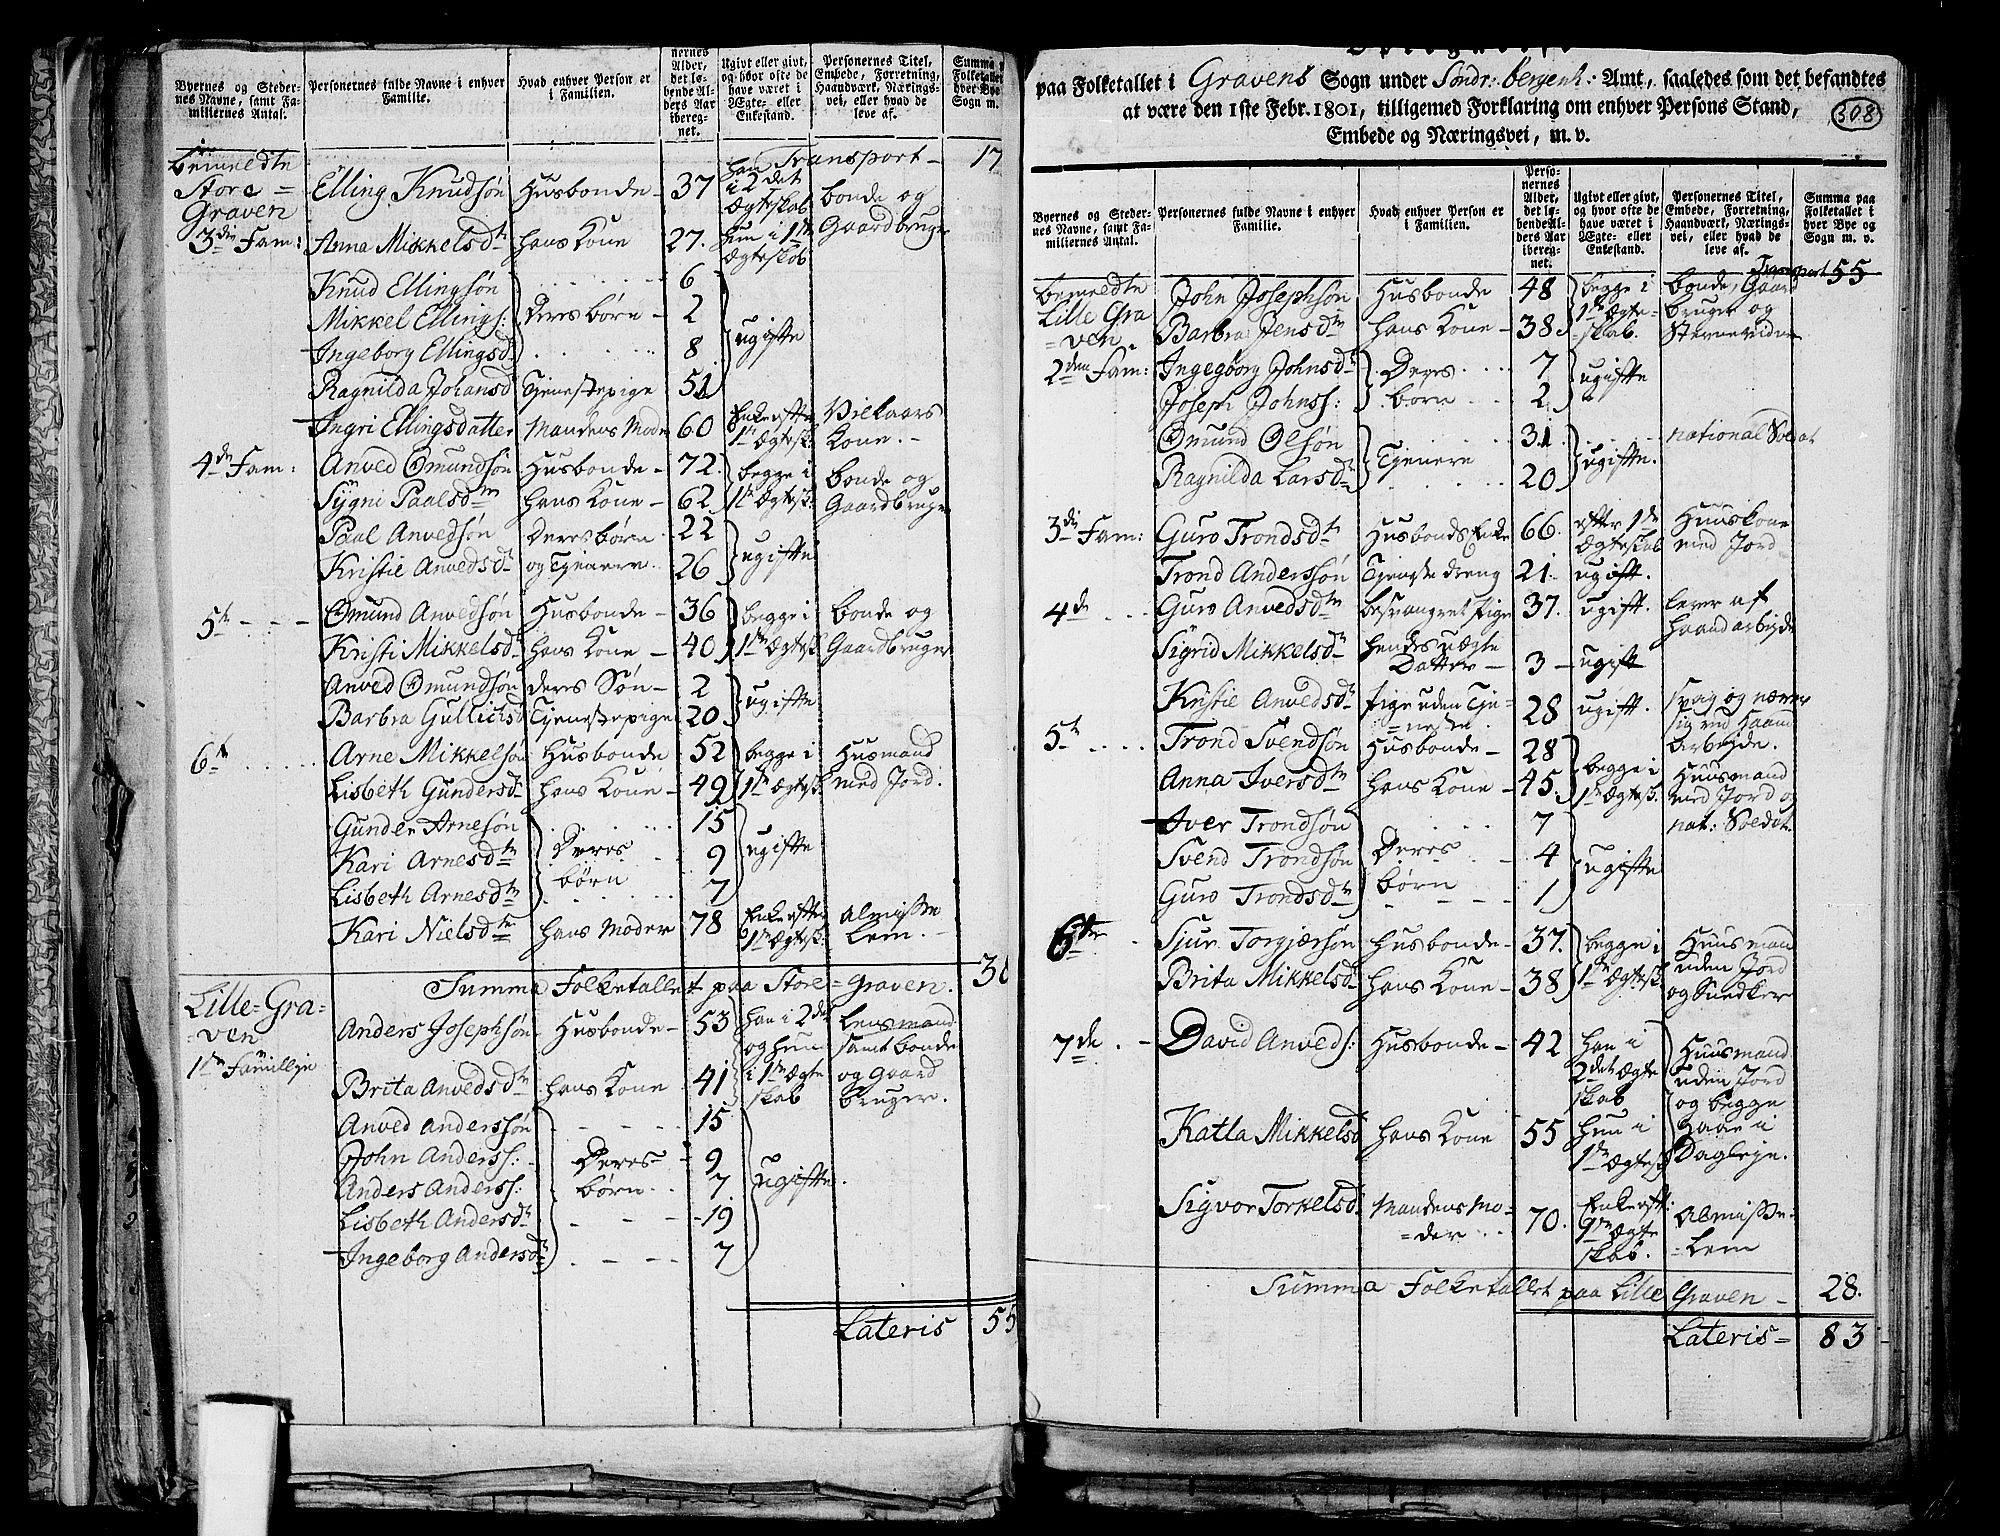 Byernes og Steder-
nes Navne, samt Fa-
miliernes Antal.
Personernes fulde Navne i enhver
Familie.
Hvad enhver Person er
i Familien.
nernes
Alder,
det lø-
bende Al-
ders Aar
iberegn-
net.
Ugivt eller givt,
og hvor ofte de
have været i
Ægte- eller
Enkestand.
Personernes Titel,
Embede, Forretning,
Haandværk, Nærings-
vei, eller hvad de
leve af.
Summa p
Folketallet
hver Bye
Sogn m.
Transport - 17
bemeldte
Store =
Graven
3die Fam: Elling Knudsøn Husbonde - 37 han i 2det Ægteskab bonde og Gaardbruger
Anna Mikkelsdtr hans Kone 27. hun i 1te Ægteskab
Knud Ellingsøn 6
Mikkel Ellings: Deres børn - 2 ugifte
Ingeborg Ellingsd 8
Ragnilda Johansd Tjenestepige 51
Ingri Ellingsdatter Mandens Moder 60 Enke efter 1te Ægtesk. Vilkaars Kone. -
4de Fam: Anved Omundsøn Husbonde - 72. begge i 1te Ægtesk: bonde og Gaardbruger
Sÿgni Paalsdtr hans Kone - 62
Paal Anvedsøn Deres børn 22 ugifte
Kristie Anvedsdtr og Tjenere. 26
5te - - - Omund Anvedsøn Husbonde - 36 begge i 1te Ægtesk. bonde og Gaardbruger
Kristi Mikkelsd hans Kone - 40
Anved Omundsøn deres Søn - 2 ugifte
Barbra Gullichsd Tjenestepige 20
6te Arne Mikkelsøn Husbonde 52 begge i 1te Ægtesk. Husmand med Jord.
Lisbeth Gundersd hans Kone - 49
Gunder Arnesøn 15
Kari Arnesdtr Deres børn 9 ugifte
Lisbeth Arnesdtr 7
Kari Nielsdtr hans Moder 78 Enke efter 1te Ægtesk: Almisse Lem. -
Summa Folketallet paa Store = Graven. 38
Lille = Gra=
=ven
1te Familije Anders Josephsøn Husbonde - 53 han i 2det og hun i 1te Ægteskab Lensmand samt bonde og Gaard bruger.
Brita Anvedsdtr hans Kone 41
Anved Anderssøn 15
John Anderss: Deres 9
Anders Anderss: børn 7 ugifte
Lisbeth Andersdtr 19
Ingeborg Andersdtr 7
Lateris 55
paa Folketallet i Gravens Sogn under Søndr: bergenh: Amt, saaledes som det befandtes
at være den 1ste Febr. 1801, tilligemed Forklaring om enhver Persons Stand,
Embede og Næringsvei, m. v.
308
Byernes og Steder-
nes Navne, samt Fa-
miliernes Antal.
Personernes fulde Navne i enhver
Familie.
Hvad enhver Person er
i Familien.
Perso-
nernes
Alder,
det lø-
bende Al-
ders Aar
iberegn-
net.
Ugivt eller givt,
og hvor ofte de
have været i
Ægte- eller
Enkestand.
Personernes Titel,
Embede, Forretning,
Haandværk, Nærings-
vei, eller hvad de
leve af.
Summa paa
Folketallet i
hver Bye og
Sogn m. v.
Transport 55
bemeldte
Lille Gra
=ven
John Josephsøn Husbonde 48 begge i 1te Ægte=skab. bonde, Gaard bruger og Stevnevidne
Barbra Jensdtr hans Kone - 38
2den Fam: Ingegborg Johnsdtr Deres 7 ugifte
Joseph Johnss: børn 2
Omund Olsøn Tjenere 31 ugifte. national Soldat
Ragnilda Larsdtr 20
3die Fam: Guro Trondsdtr Husbonds Enke 66. efter 1te Ægteskab Huuskone med Jord
Trond Anderssøn Tjenestedreng 21. ugift.
4de Guro Anvedsdtr besvangret Pige 37. ugift. lever af Haandarbejde
Sigrid Mikkelsdtr hendes uægte Datter - 3 - ugift
Kristie Anvedsdtr Pige uden Tje=neste. 28 ugift. svag og nærer sig ved Haandarbejde.
5te Trond Svendsøn Husbonde - 28 begge i 1te Ægtesk. Huusmand med Jord og nat: Soldat
Anna Iversdtr hans Kone - 45.
Iver Trondsøn 7
Svend Trondsøn Deres 4 ugifte
Guro Trondsdtr børn 1
6te Sjur Torgjersøn Husbonde - 37. begge i 1te Ægtesk. Huusmand uden Jord og Snedker
Brita Mikkelsd hans Kone - 38
7de David Anveds: Husbonde - 42 han i 2det Ægteskab Huusmand uden Jord og begge Gaar i Dagleje.
Katla Mikkelsd hans Kone 55 hun i 1te Ægtesk
Sigvor Torkelsd Mandens Mo=der 70. Enke eft: Ægteskab. Almisse=Lem
Summa Folketallet paa Lille Graven - 28.
Lateris = 83